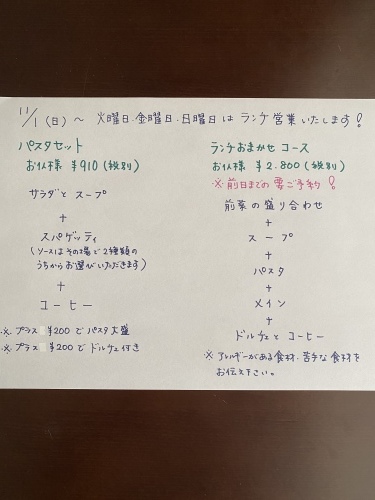 11/1(日)〜 火曜日.金曜日.日曜日はランチ営業いたします!
パスタセット
お1人様 ¥910(税別)
サラダと スープ
+
スパゲッティ
(ソースはその場で2種類の
うちからお選びいただきます)
+
コーヒー
※プラス ¥200でパスタ大盛
※プラス ¥200でドルチェ付き
ランチおまかせ コース
お1人様 ¥2.800(税別)
※前日までの要ご予約!
前菜の盛り合わせ
+
スープ
+
パスタ
+
メイン
+
ドルチェとコーヒー
※アレルギーがある食材.苦手な食材を
お伝え下さい。